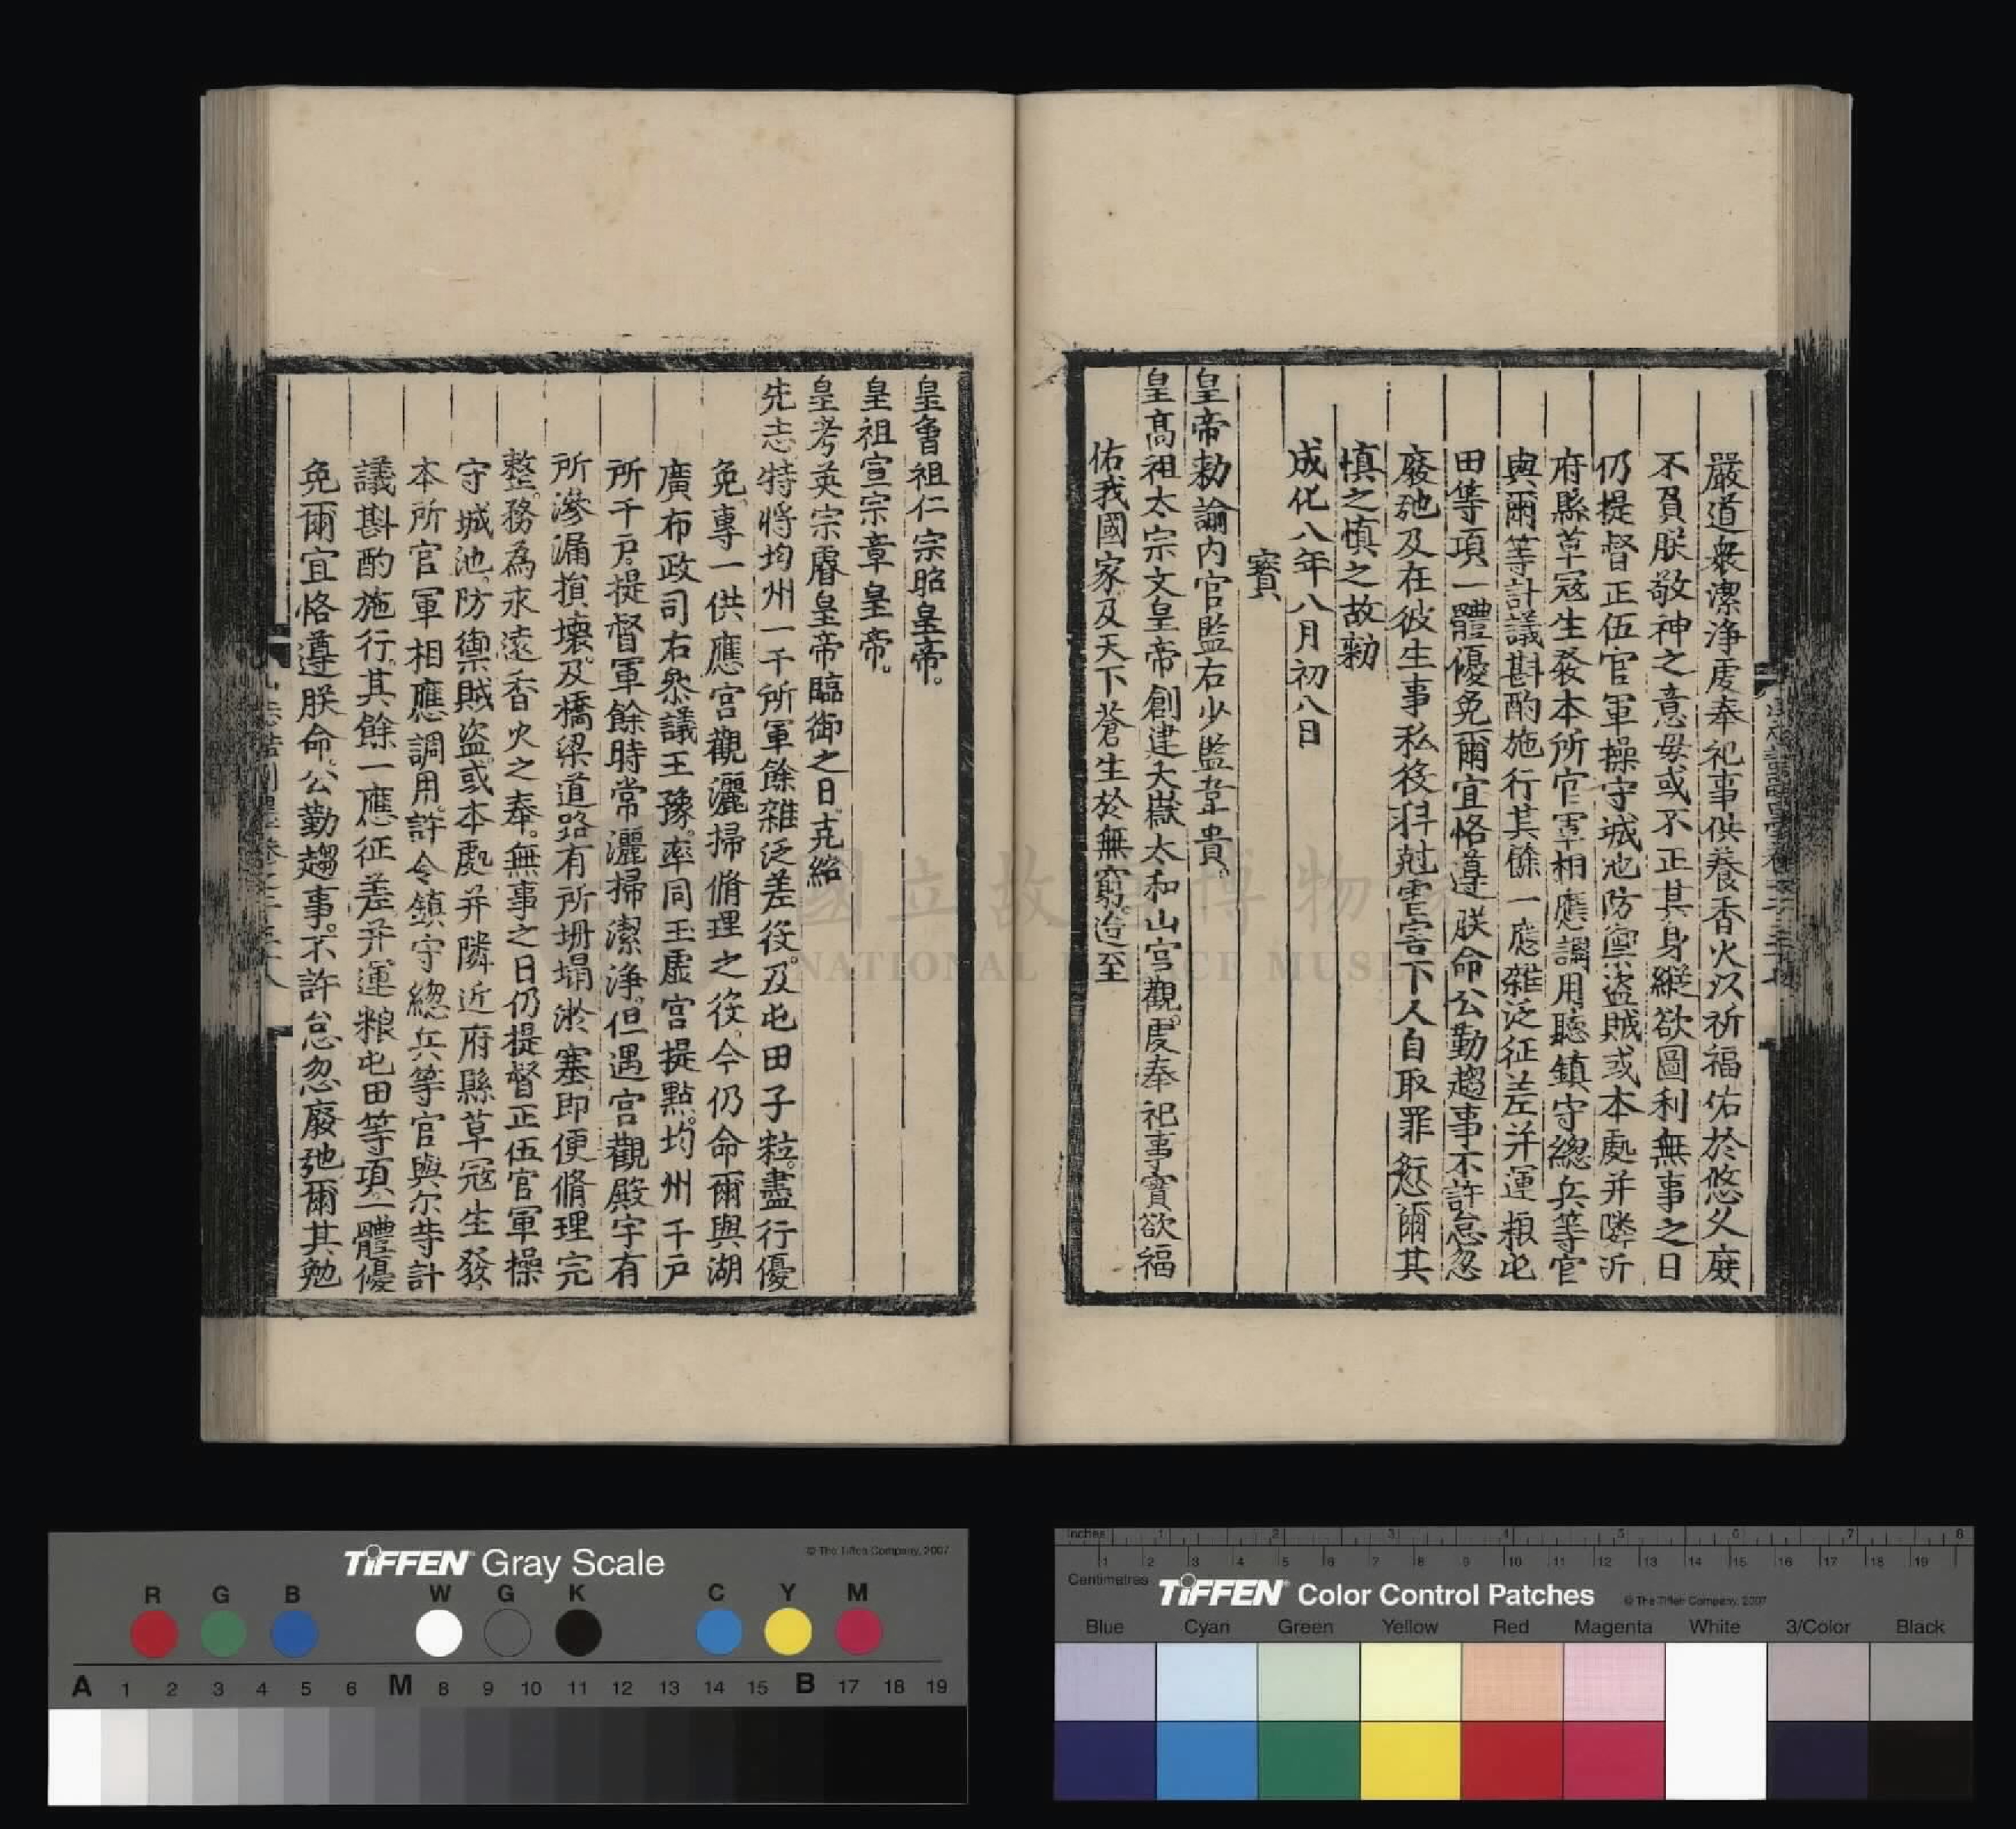 嚴道衆潔淨虔奉祀事供養香火以祈福佑於悠久庻
不負朕敬神之意毋或不正其身縱欲圖利無事之日
仍提督正伍官軍操守城池防禦盜賊或本處并隣近
府縣草冦生發本所官軍相應調用聽鎮守緫兵等官
與爾等計議斟酌施行其餘一應雜泛征差并運粮屯
田等項一體優免爾宜恪遵朕命公勤趨事不許怠忽
廢弛及在彼生事私役科尅害下人自取罪愆爾其
慎之慎之故勑
成化八年八月初八日
寳
皇帝勑諭内官監右少監韋貴。
皇髙祖太宗文皇帝創建大嶽太和山宫觀虔奉祀事實欲福
佑我國家及天下蒼生於無窮迨至
皇曾祖仁宗昭皇帝。
皇祖宣宗章皇帝。
皇考英宗睿皇帝臨御之日克紹
先志特將均州一千所軍餘雜泛差役。及屯田子粒。盡行優
免。專一供應宫觀灑掃脩理之役。今仍命爾與湖
廣布政司右叅議王豫。率同玉虛宫提點。均州千戸
所千戸。提督軍餘時常灑掃潔淨。但遇宫觀殿宇有
所滲漏損壞。及橋梁道路有所坍塌淤塞。即便脩理完
整。務為永遠香火之奉。無事之日仍提督正伍官軍操
守城池。防禦賊盜。或本處并隣近府縣草冦生發
本所官軍相應調用。許令鎮守緫兵等官與尔等計
議斟酌施行。其餘一應征差并運粮屯田等項。一體優
免爾宜恪遵朕命。公勤趨事。不許怠忽廢弛。爾其勉
國立故宮博物院
NATIONAL PALACE MUSEUM
TIFFEN Gray Scale
© The Tiffen Company, 2007
R G B W G K C Y M
A 1 2 3 4 5 6 M 8 9 10 11 12 13 14 15 B 17 18 19
Inches 1 2 3 4 5 6 7 8
1 2 3 4 5 6 7 8 9 10 11 12 13 14 15 16 17 18 19
Centimetres
TIFFEN Color Control Patches
© The Tiffen Company, 2007
Blue Cyan Green Yellow Red Magenta White 3/Color Black